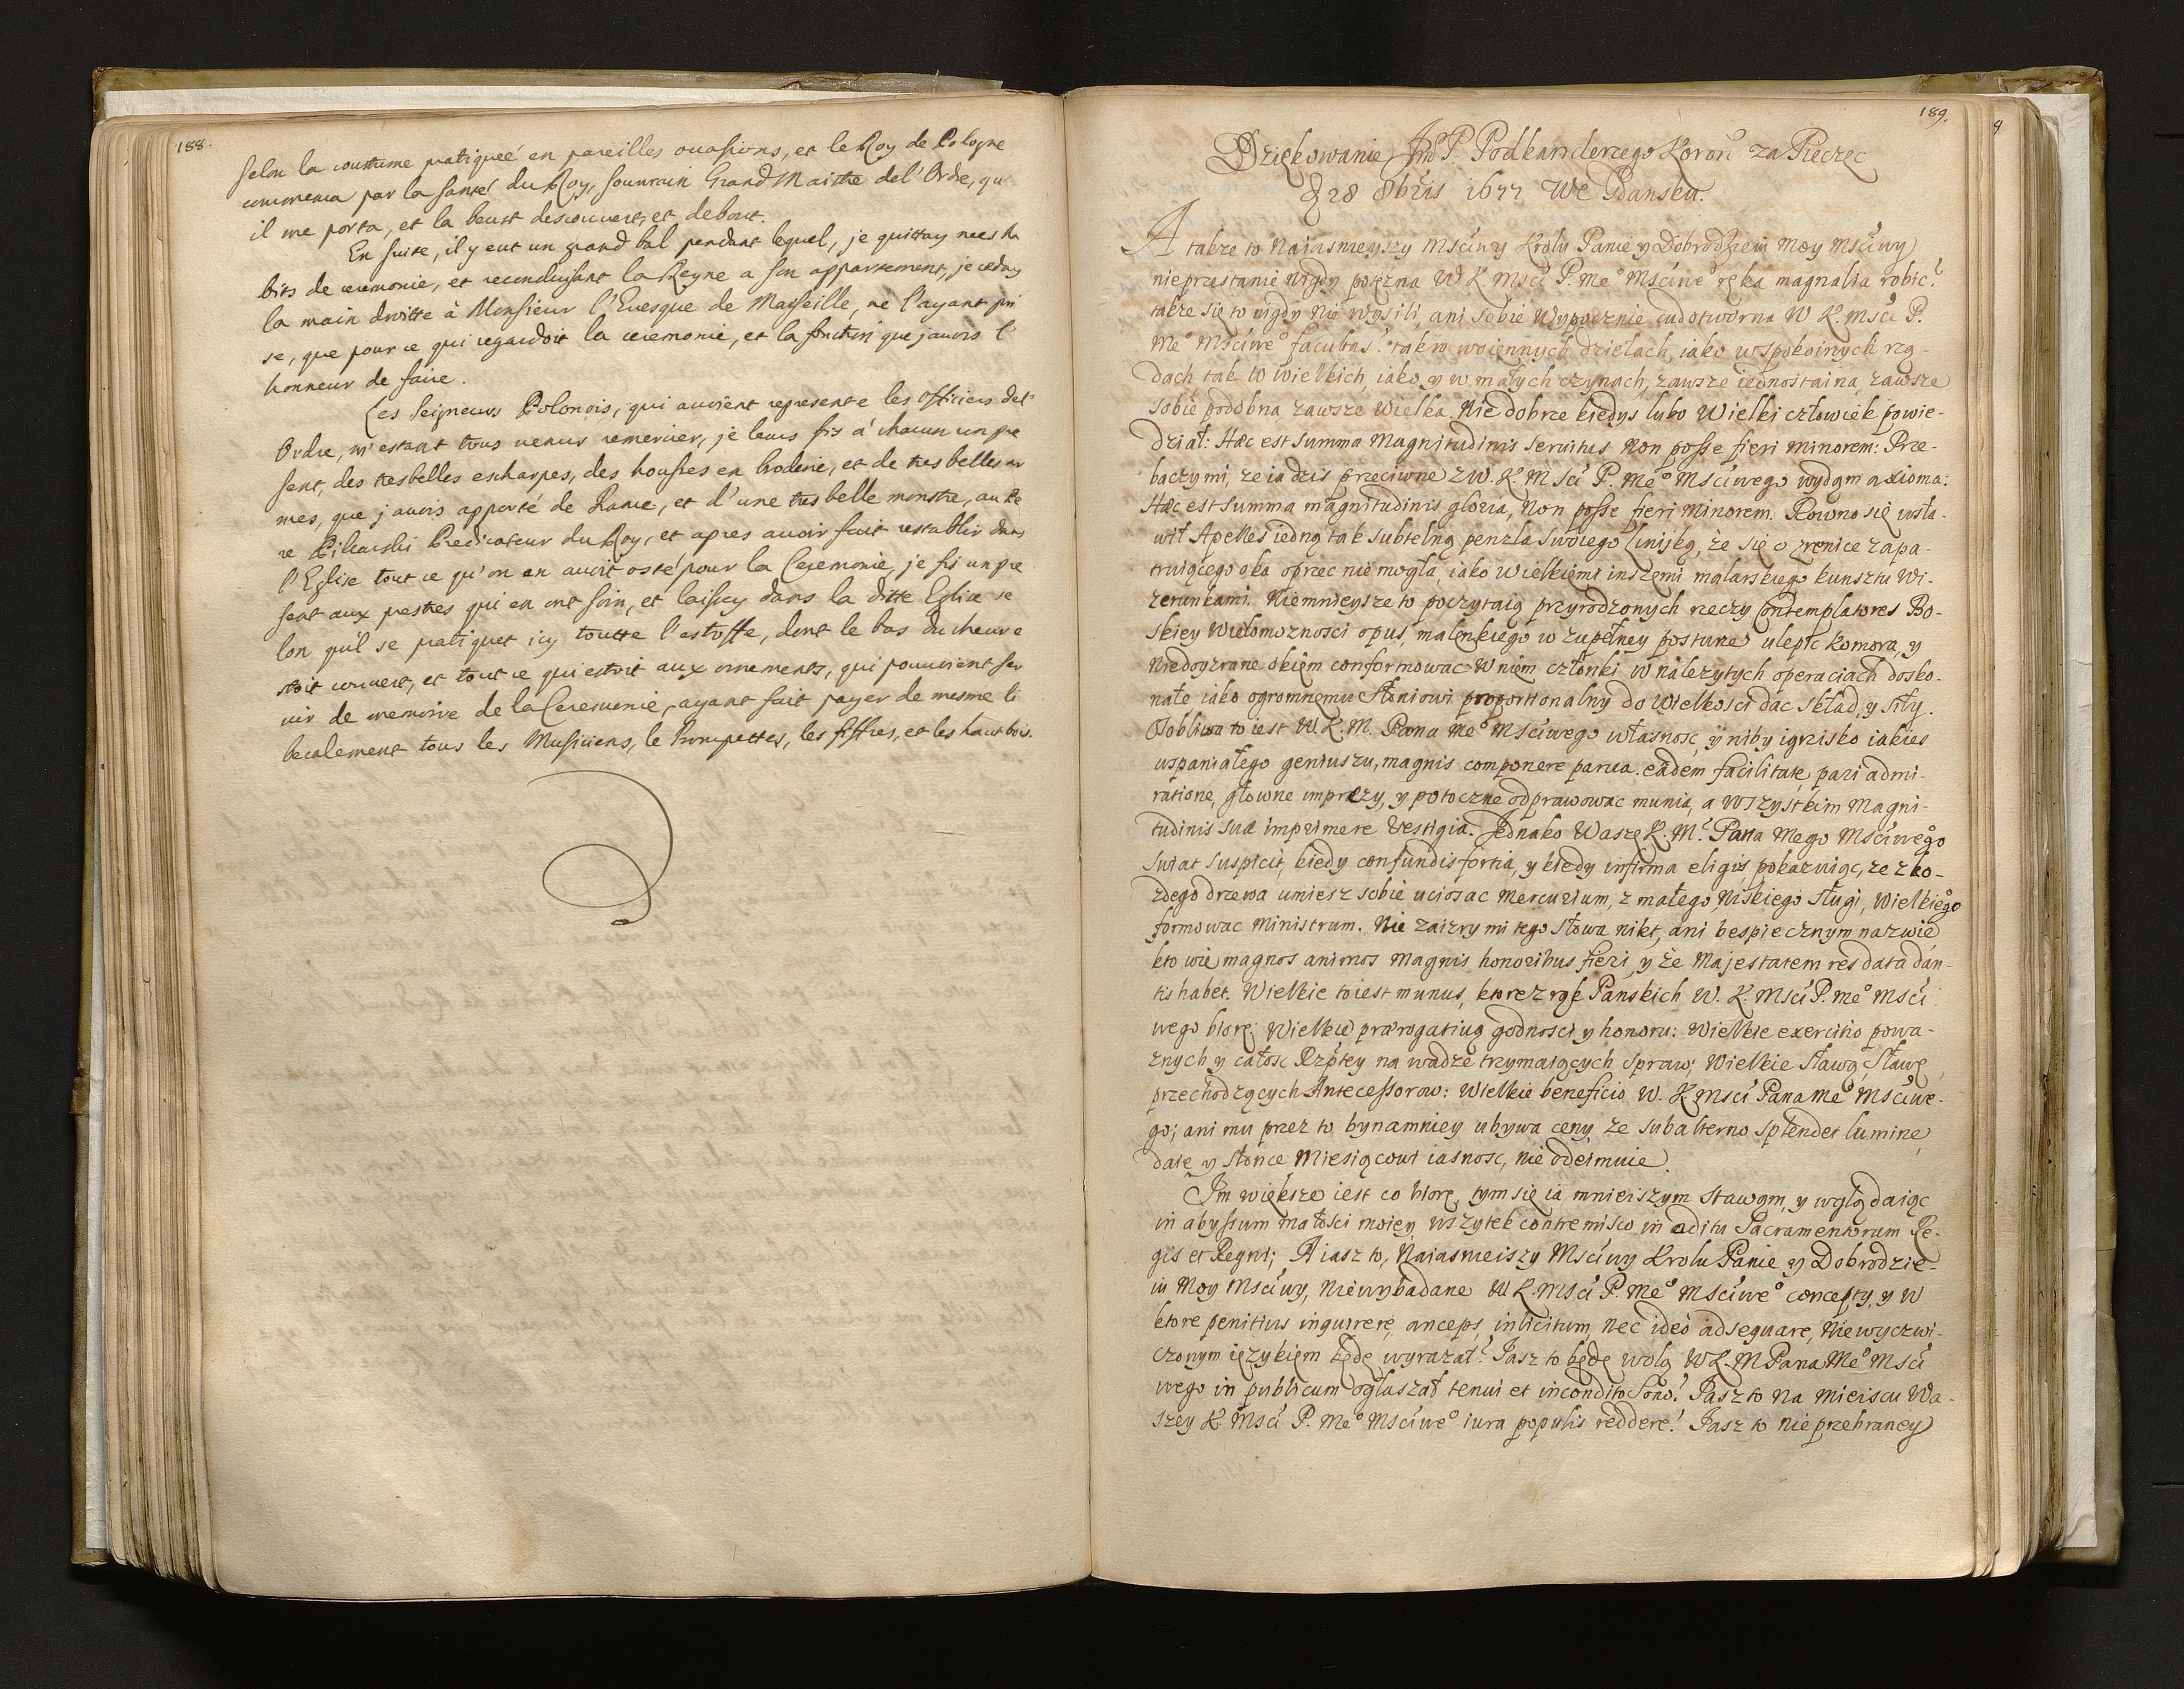 188.
selon la coustume pratiqueé en pareilles occasions, et le Roy de Pologne
commenca par la santé du Roy, souverain Grand Maistre de l'Ordre, qu'
il me porta, et la beust descouvert, et debout.
En suite, il y eut un grand bal pendant lequel, je quittay mes ha
bits de ceremonie, et reconduisant la Reyne a son appartement, je ceday
la main droitte à Monsieur l'Evesque de Marseille, ne l'ayant pri
se, que pour ce qui regardoit la ceremonie, et la fonction que j'avois l'
honneur de faire.
Les Seigneurs Polonois, qui avoient represente les Officiers de l'
Ordre, m'estant tous venus remercier, je leurs fis à chacun un pre
sent, des tres belles escharpes, des housses en broderie, et de tres belles ar
mes, que j'avois apporté de France, et d'une tres belle monstre, au Pe
re Predicateur du Roy, et apres avoir fait restablir dans
l'Eglise tout ce qu'on en avoit osté pour la Ceremonie, je fis un pre
sent aux prestres qui en ont soin, et laissay dans la ditte Eglise se
lon qu'il se pratiquet icy toutte l'estoffe, dont le bas du cheure
stoit couvert, et tout ce qui estoit aux ornements, qui pouvoient ser
vir de memoire de la Ceremonie, ayant fait payer de mesme li
beralement tous les Musiciens, le trompettes, les fiffres, et les hautbois.
189.
Dziękowanie Jmo P. Podkanclerzego Koron za Pieczęc
d 28 8bris 1677 We Gdansku.
A takze to Naiasnieyszy Msciwy Krolu Panie y Dobrodzieiu Moy Msciwy
nieprzestanie nigdy potęzna W K. Msci P. Meo Msciweo ręka magnalia robic?
takze się to nigdy nie wysili, ani sobie wypocznie cudotworna W K. Msci P.
Meo Msciweo facultas? tak w woiennych dziełach, iako w spokoinych rzą-
dach tak w wielkich, iako y w małych czynach, zawsze iednostaina, zawsze
sobie podobna zawsze wielka. Nie dobrze kiedys lubo Wielki człowiek powie-
dział: Hæc est summa Magnitudinis servitus Non posse fieri minorem: Prze-
baczy mi, ze ia dzis przeciwne z W. K. Msci P. Meo Msciwego wydam axioma:
Hæc est summa magnitudinis gloria, Non posse fieri minorem. Rowno się wsła-
wił Apelles iedną tak subtelną penzla swoiego linijką, ze się o zrenice zapa-
truiącego oka oprzec nie mogła, iako wielkiemi inszemi malarskiego kunsztu wi-
zerunkami. Niemnieysze to poczytaią przyrodzonych rzeczy Contemplatores Bo-
skiey Wielomoznosci opus, malenkiego w zupełney posturze ulepic komora, y
niedoyzrane okiem conformowac w niem członki w nalezytych operaciach dosko-
nałe iako ogromnemu Słoniowi proportionalny do wielkosci dać skład, y siły.
Osobliwa to iest W. K. M. Pana Meo Msciwego własnosc, y niby igrzisko iakies
wspaniałego geniuszu, magnis componere parua. eadem facilitate, pari admi-
ratione, głowne imprezy, y potoczne odprawowac munia, a wszystkim Magni-
tudinis suæ imprimere vestigia. Jednako Waszę K. M. Pana Mego Msciwego
swiat suspicit, kiedy confundis fortia, y kiedy infirma eligis, pokazuiąc, ze z ka-
zdego drzewa umiesz sobie uciosac Mercurium, z małego Niskiego sługi, Wielkiego
formowac Ministrum. Nie zaizry mi tego słowa nikt, ani bespiecznym nazwie
kto wie magnos animos magnis honoribus fieri, y że Majestatem res data dan-
tis habet. Wielkie to iest munus, ktore z rąk Panskich W. K. Msci P. Meo Msci
wego biorę. Wielkie prærogatiuą godnosci y honoru: Wielkie exercitio powa-
znych y całosc Rzptey na wadze trzymaiących spraw; Wielkie sławą, sławę
przechodzących Antecessorow: Wielkie beneficio W. K. Msci Pana Meo Msciwe-
go; ani mu przez to bynamniey ubywa ceny ze subalterno splendet lumine,
daie y słonce Miesiącowi iasnosc, nie odeimuie.
Jm większe iest co biorę, tym się ia mnieiszym stawam, y wglądaiąc
in abyssum małosci moiey, wszytek contremisco in aditu Sacramentorum Re-
gis et Regni; A iasz to, Naiasneiszy Msciwy Krolu Panie y Dobrodzie-
iu Moy Msciwy, niewybadane W K. Msci P. Meo Msciweo concepty, y w
ktore penitius inquirere, anceps, inlicitum, nec ideò adsequare, Niewyczwi-
czonym ięzykiem będę wyrazał? Jasz to będę wolą W K. M Pana Meo Msci
wego in publicum ogłaszał tenui et incondito sono? Jasz to na mieiscu Wa-
szey K. Msci P. Meo Msciweo iura populis reddere! Jasz to nieprzebraney